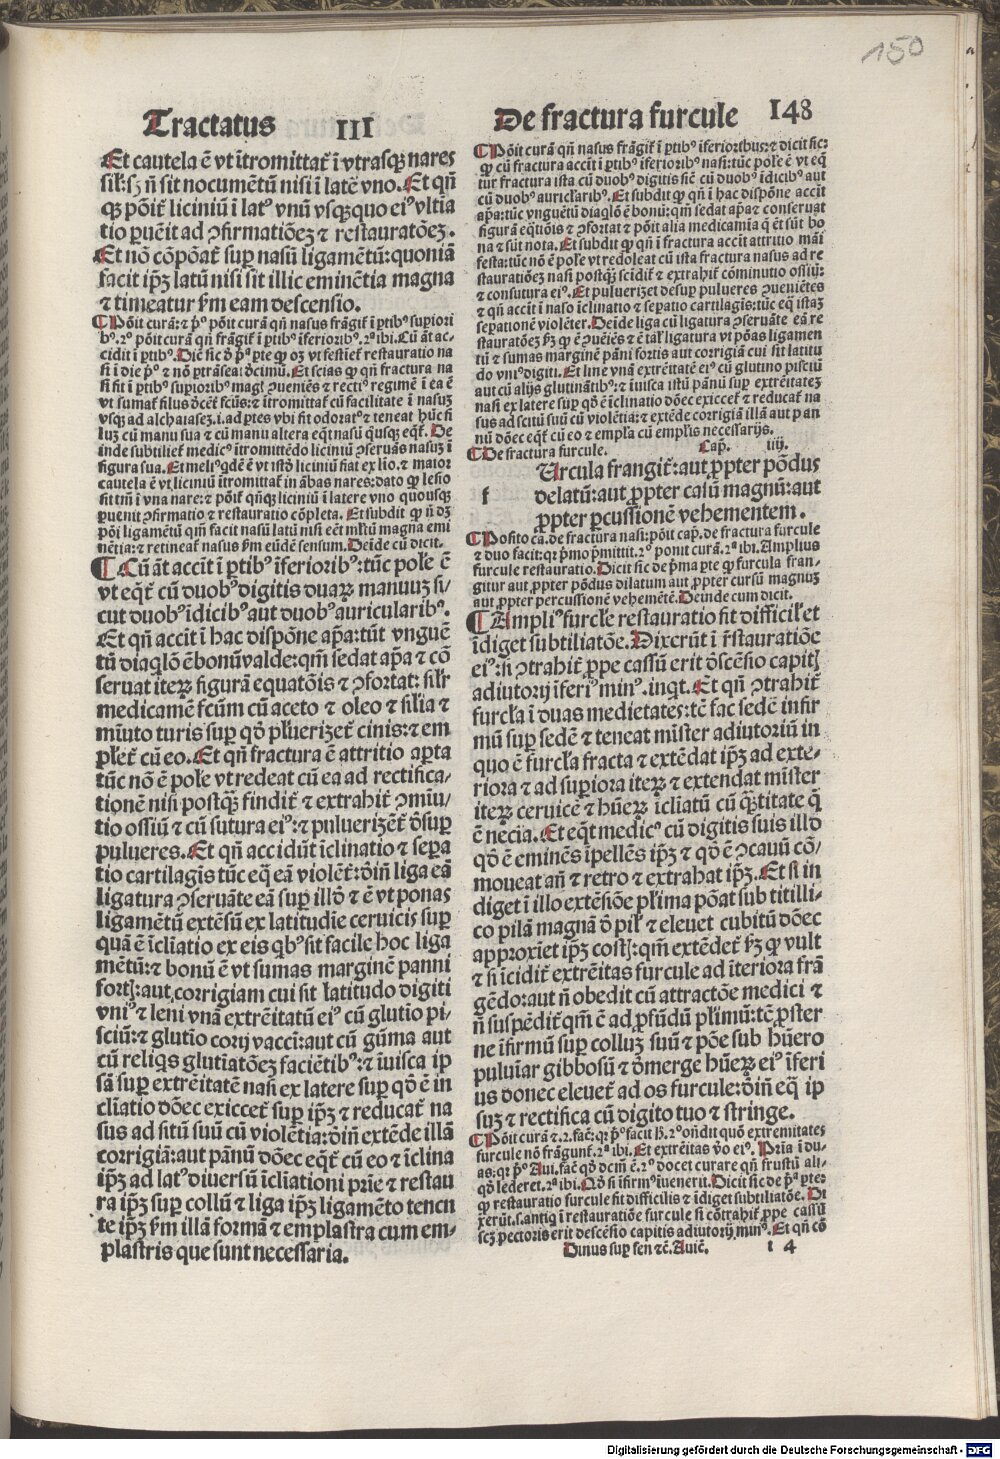 150
Tractatus III
De fractura furcule 148
Et cautela ē vt ītromittat᷑ ī vtrasqꝫ nares
sil̄r: sꝫ ñ sit nocumētū nisi ī latē vno. Et qñ
qꝫ pōit᷑ liciniū ī latꝰ vnū vsqꝫquo eiꝰ vltīa
tio ꝑuēit ad ꝯfirmatiōeꝫ ⁊ restauratōeꝫ.
Et nō cōpōat᷑ suꝑ nasū ligamētū: quoniā
facit ip̄ꝫ latū nisi sit illic eminētia magna
⁊ timeatur ẜm eam descensio.
¶ Pōit curā: ⁊ pͦ pōit curā qñ nasus frāgit᷑ ī ꝑtibꝰ suꝑiori
bꝰ. 2ͦ pōit curā qñ frāgit᷑ ī ꝑtibꝰ īferioribꝰ. 2ª ibi. Cū āt ac-
cidit ī ꝑtibꝰ. Dic̄ sic ō pª ꝑte ꝙ oꝫ vt festiet᷑ restauratio na
si ī die pͦ ⁊ nō ꝑtrāsea: ō̄cimū. Et scias ꝙ qñ fractura na
si fit ī ꝑtibꝰ suꝑioribꝰ magꝭ ꝯueniēs ⁊ rectiꝰ regimē ī ea ē
vt sumat᷑ filus ōcēt᷑ fcūs: ⁊ ītromittat᷑ cū facilitate ī nasuꝫ
vsqꝫ ad alchaiaseꝫ .i. ad ꝑtes vbi fit odoratꝰ ⁊ teneat hūc fi
luꝫ cū manu sua ⁊ cū manu altera eq̄t nasū q̄usqꝫ eq̄t᷑. De
inde subtiliet᷑ medicꝰ ītromittēdo liciniū ꝯseruās nasuꝫ ī
figura sua. Et meliꝰ qdē ē vt istō liciniū fiat ex līo. ⁊ maior
cautela ē vt liciniū ītromittat᷑ in ābas nares: dato ꝙ lesio
fit tm̄ ī vna nare: ⁊ pōit᷑ qñqꝫ liciniū ī latere vno quousqꝫ
ꝑuenit ꝯfirmatio ⁊ restauratio cōpleta. Et subdit ꝙ ñ oꝫ
pōi ligamētū qm̄ facit nasū latū nisi eēt ml̄tū magna emi
nētia: ⁊ retineat᷑ nasus ẜm eūdē sensum. Deīde cū dicit.
¶ Cū āt accīt ī ꝑtibꝰ īferioribꝰ: tūc pole ē
vt eq̄t᷑ cū duobꝰ digitis duaꝝ manuuꝫ si-
cut duobꝰ īdicibꝰ aut duobꝰ auricularibꝰ.
Et qñ accīt ī hac dispōne ap̄a: tūt vnguē
tū diaqlō ē bonū valde: qm̄ sedat ap̄a ⁊ cō
seruat iteꝝ figurā equatōis ⁊ ꝯfortat: sil̄r
medicamē fcūm cū aceto ⁊ oleo ⁊ silia ⁊
mīuto turis suꝑ qō pluerizet᷑ cinis: ⁊ em
plet᷑ cū eo. Et qñ fractura ē attritio aꝑta
tūc nō ē pole vt redeat cū ea ad rectifica-
tionē nisi postqꝫ findit᷑ ⁊ extrahit᷑ ꝯmīu-
tio ossiū ⁊ cū sutura eiꝰ: ⁊ puluerizēt᷑ ōsuꝑ
pulueres. Et qñ accidūt īclinatio ⁊ seꝑa
tio cartilagīs tūc eq̄ eā violēt᷑: ōiñ liga eā
ligatura ꝯseruāte eā suꝑ illō ⁊ ē vt ponas
ligamētū extēsū ex latitudie ceruicis suꝑ
quā ē īclīatio ex eis qbꝰ sit facile hoc liga
mētū: ⁊ bonū ē vt sumas marginē panni
fortꝭ: aut corrigiam cui sit latitudo digiti
vniꝰ ⁊ leni vnā extrēitatū eiꝰ cū glutio pi-
sciū: ⁊ glutio corij vaccī: aut cū gūma aut
cū reliqs glutīatōeꝫ faciētibꝰ: ⁊ īuisca ip
sā suꝑ extrēitatē nasi ex latere suꝑ qō ē in
clīatio dōec exiccet᷑ suꝑ ip̄ꝫ ⁊ reducat᷑ na
sus ad sitū suū cū violētia: ōiñ extēde illā
corrigiā: aut pānū dōec eq̄t᷑ cū eo ⁊ īclina
ip̄ꝫ ad latꝰ diuersū īcliationi pr̄ie ⁊ restau
ra ip̄ꝫ suꝑ collū ⁊ liga ip̄ꝫ ligamēto tenen
te ip̄ꝫ ẜm illā formā ⁊ emplastra cum em-
plastris que sunt necessaria.
¶ Pōit curā qñ nasus frāgit᷑ ī ꝑtibꝰ īferioribus: ⁊ dicit sic:
ꝙ cū fractura accīt ī ꝑtibꝰ īferioribꝰ nasi: tūc pole ē vt eq̄
tur fractura ista cū duobꝰ digitis sic̄ cū duobꝰ īdicibꝰ aut
cū duobꝰ auriclaribꝰ. Et subdit ꝙ qñ ī hac dispōne accīt
ap̄a: tūc vnguētū diaqlō ē bonū: qm̄ sedat ap̄a ⁊ conseruat
figurā eq̄tiōis ⁊ ꝯfortat ⁊ pōit alia medicamīa q̄ ēt sūt bo
na ⁊ sūt nota. Et subdit ꝙ qñ ī fractura accīt attritio māi
festa: tūc nō ē pole vt redoleat cū ista fractura nasus ad re
stauratiōeꝫ nasi postqꝫ scīdit᷑ ⁊ extrahit᷑ cōminutio ossiū:
⁊ consutura eiꝰ. Et puluerizet desuꝑ pulueres ꝯueniētes
⁊ qñ accīt ī naso īclinatio ⁊ seꝑatio cartilagīs: tūc eq̄ istaꝫ
seꝑationē violēter. Deīde liga cū ligatura ꝯseruāte eā re
stauratōeꝫ ẜꝫ ꝙ ē ꝯuēiēs ⁊ ē tal̄ ligatura vt pōas ligamen
tū ⁊ sumas marginē pāni fortis aut corrigiā cui sit latitu
do vniꝰ digiti. Et line vnā extrētatē eiꝰ cū glutino pisciū
aut cū alijs glutinātibꝰ: ⁊ īuisca istū pānū suꝑ extrēitateꝫ
nasi ex latere suꝑ qō ē īclinatio dōec exiccet᷑ ⁊ reducat᷑ na
sus ad scitū suū cū violētia: ⁊ extēde corrigiā illā aut p an
nū dōec eq̄t᷑ cū eo ⁊ empla cū emplis necessarijs.
¶ De fractura furcule. Cap̄. iiij.
f Urcula frangit᷑: aut ꝓpter pōdus
delatū: aut ꝓpter casū magnū: aut
ꝓpter ꝑcussionē vehementem.
¶ Posito cā. de fractura nasi: pōit cap̄. de fractura furcule
⁊ duo facit: qr pͦmo p̄mittit. 2ͦ ponit curā. 2ª ibi. Amplius
furcule restauratio. Dicit sic de pͦma ꝑte ꝙ furcula fran-
gitur aut ꝓpter pōdus dilatum aut ꝓpter cursū magnuꝫ
aut ꝓpter percussionē vehemētē. Deinde cum dicit.
¶ Ampliꝰ furcl̄e restauratio fit difficil̄ et
īdiget subtiliatōe. Dixerūt ī r̄stauratiōe
eiꝰ: si ꝯtrahit᷑ ꝓpe cassū erit ōscēsio capitꝭ
adiutorij īferiꝰ minꝰ. inqt. Et qñ ꝯtrahit᷑
furcl̄a ī duas medietates: tē fac sedē infir
mū suꝑ sedē ⁊ teneat mīster adiutoriū in
quo ē furcl̄a fracta ⁊ extēdat ip̄ꝫ ad exte-
riora ⁊ ad suꝑiora iteꝝ ⁊ extendat mīster
iteꝝ ceruicē ⁊ hūeꝝ īclīatū cū q̄ꝫtitate q̄
ē necīa. Et eq̄t medicꝰ cū digitis suis illō
qō ē eminēs īpellēs ip̄ꝫ ⁊ qō ē ꝯcauū cō-
moueat añ ⁊ retro ⁊ extrahat ip̄ꝫ. Et si in
diget ī illo extēsiōe pl̄ima pōat sub titilli-
co pilā magnā ō pil̄ ⁊ eleuet cubitū dōec
approxīet ip̄ꝫ costꝭ: qm̄ extēdet᷑ ẜꝫ ꝙ vult
⁊ si īcīdit᷑ extrēitas furcule ad īteriora frā
gēdo: aut ñ obedit cū attractōe medici ⁊
ñ suspēdit᷑ qm̄ ē ad ꝓfūdū pl̄imū: tē ꝓster
ne īfirmū suꝑ colluꝫ suū ⁊ pōe sub hūero
puluīar gibbosū ⁊ ōmerge hūeꝝ eiꝰ īferi
us donec eleuet᷑ ad os furcule: ōiñ eq̄ ip
suꝫ ⁊ rectifica cū digito tuo ⁊ stringe.
¶ Pōit curā ⁊ .2. fac̄: qr pͦ facit ħ. 2ͦ oñdit quō extremitates
furcule nō frāgunt᷑. 2ª ibi. Et extrēitas v̄o eiꝰ. Pr̄ia ī du-
as: qr pͦ Aui. fac̄ qō dcm̄ ē. 2ͦ docet curare qñ frustū ali-
qō lederet. 2ª ibi. Qō si īfirmꝰ īuenerit. Dicit sic de pª ꝑte:
ꝙ restauratio furcule fit difficilis ⁊ īdiget subtiliatiōe. Di
xerūt .s. antiq ī restauratiōe furcule si cōtrahit᷑ ꝓpe cassū
scꝫ pectoris erit descēsio capitis adiutorij minꝰ. Et qñ cō
Dinus suꝑ fen ⁊c̄. Auic̄. t 4
Digitalisierung gefördert durch die Deutsche Forschungsgemeinschaft - DFG